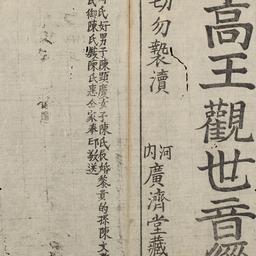 高王觀世音經
切勿褻瀆
河內廣濟堂藏
氏好男子陳顯慶女子陳氏長婚黎貴的孫陳文
氏御陳氏陳氏惠仝家奉印敬送